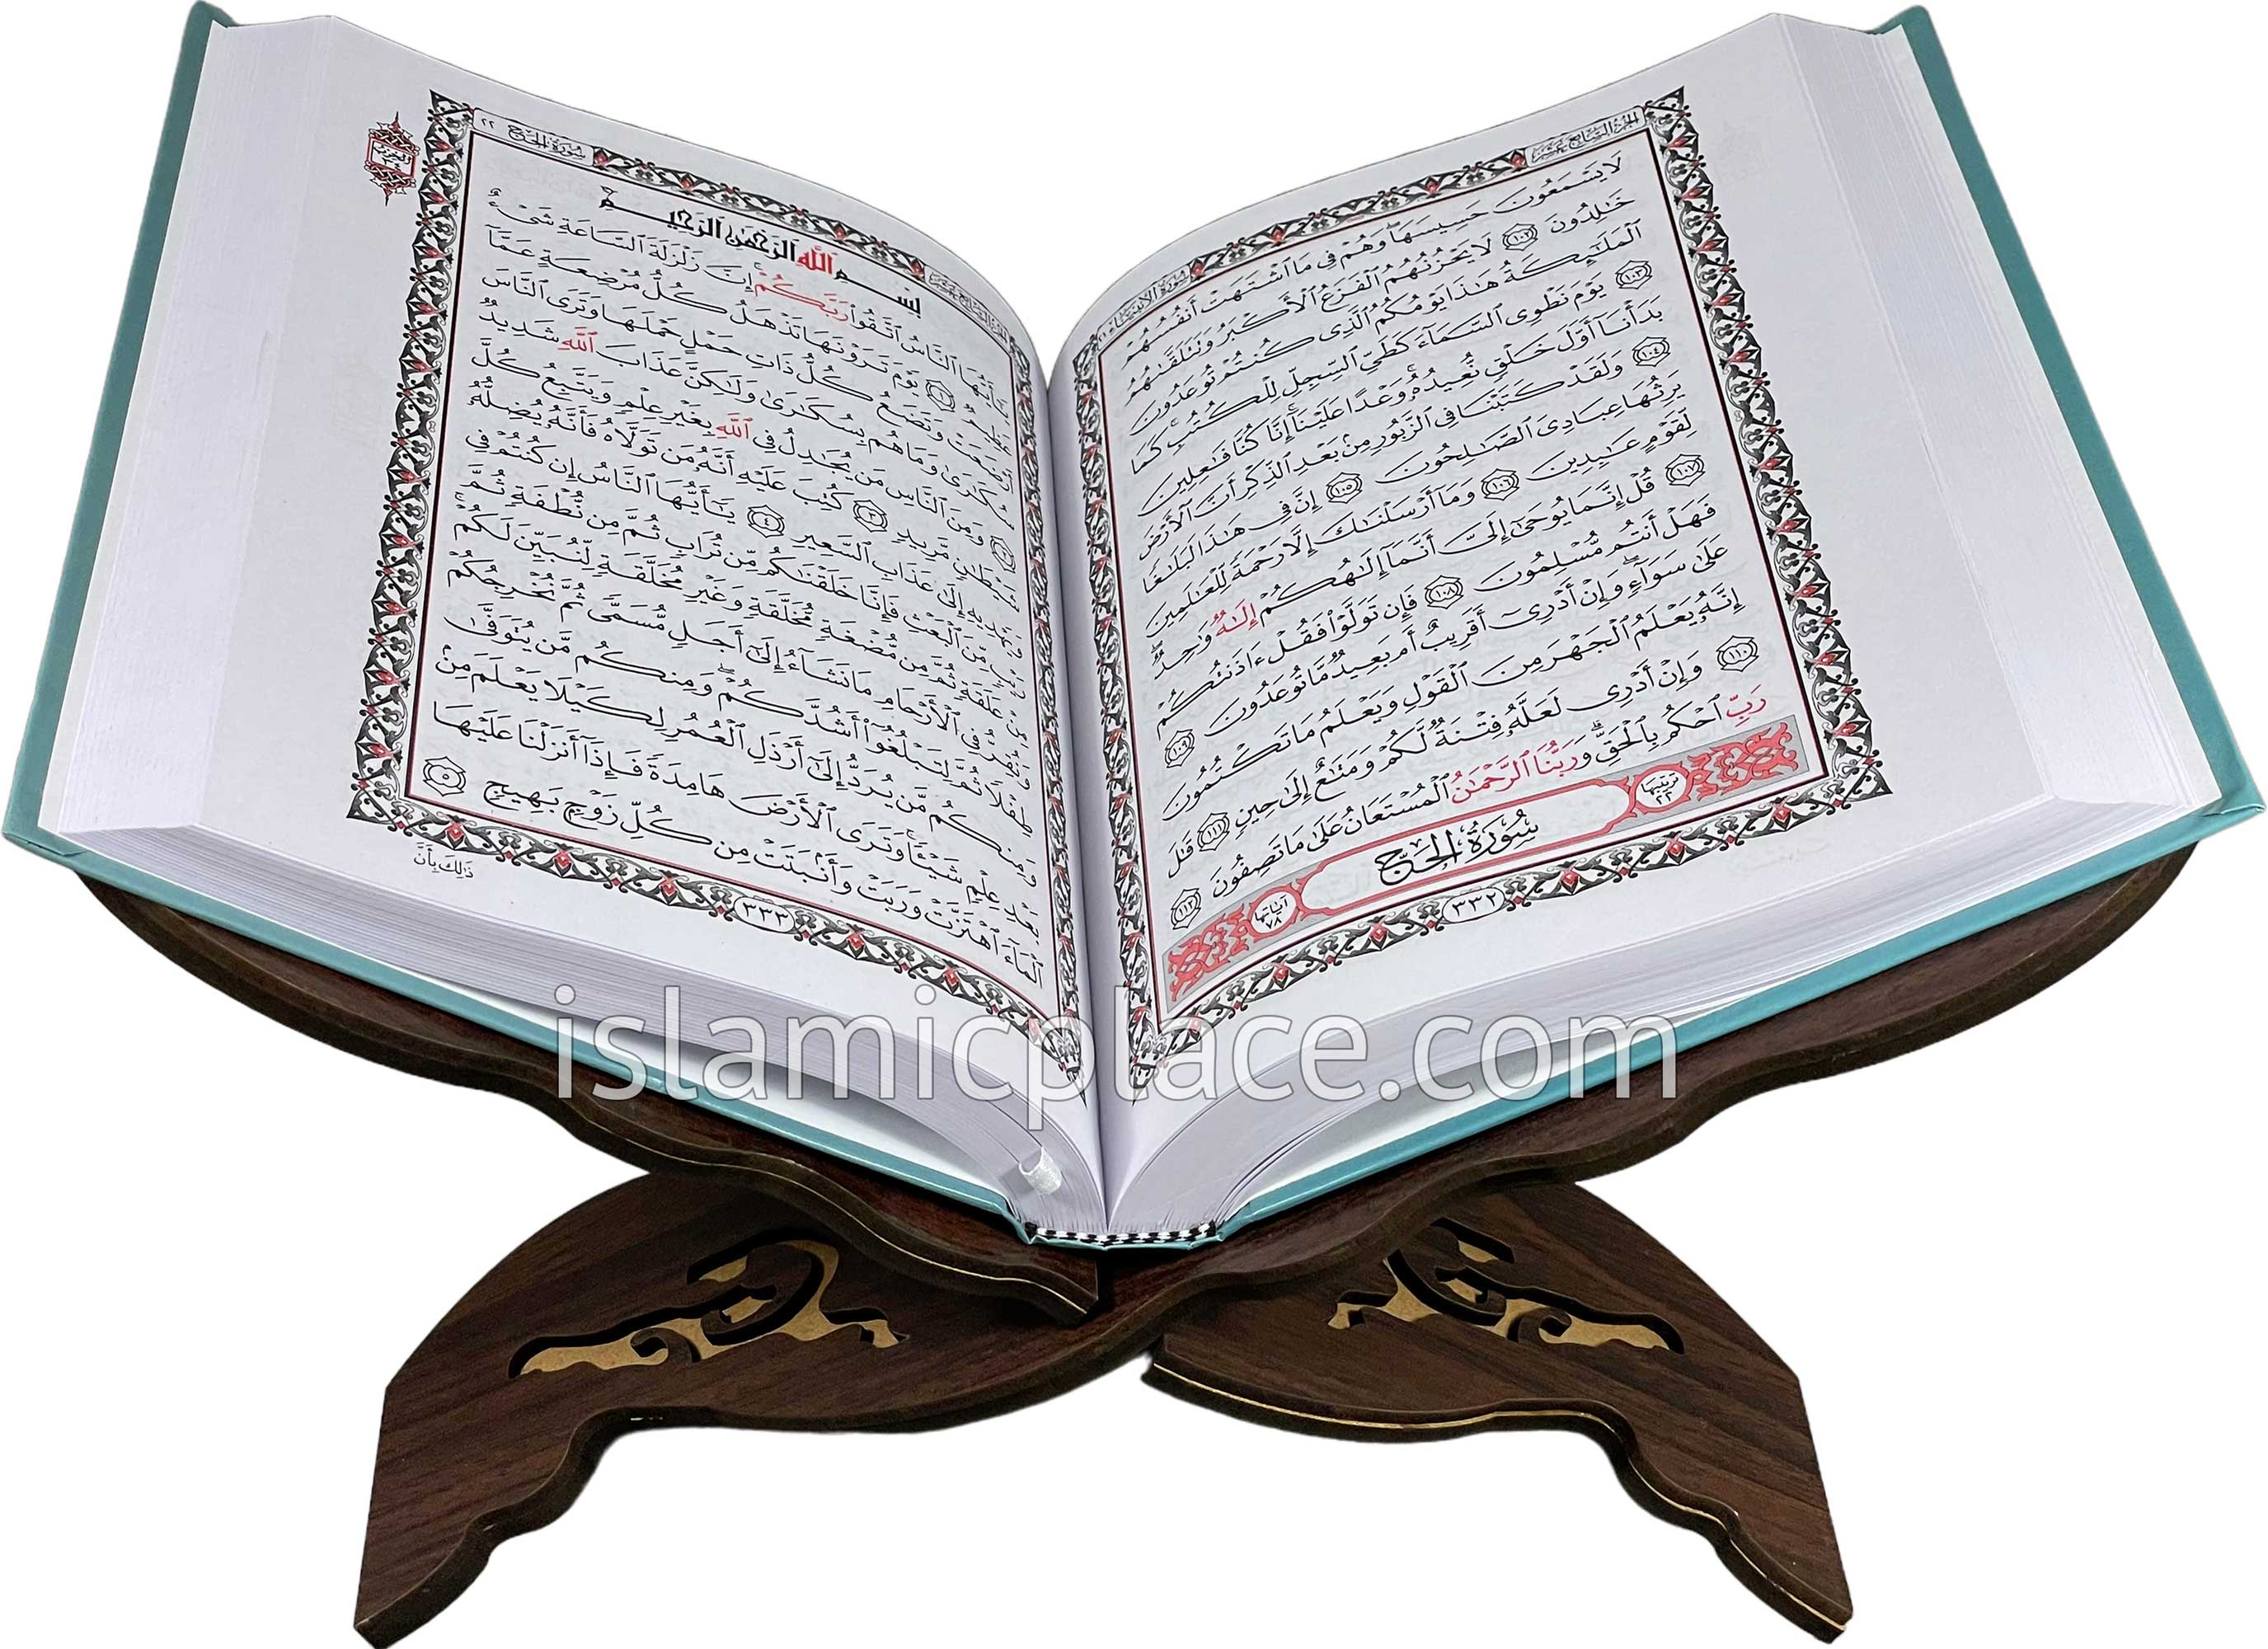 الجزء السابع عشر
سورة الأنبياء ٢١
لَا يَسْمَعُونَ حَسِيسَهَا ۖ وَهُمْ فِي مَا ٱشْتَهَتْ أَنفُسُهُمْ
خَـٰلِدُونَ ١٠٢ لَا يَحْزُنُهُمُ ٱلْفَزَعُ ٱلْأَكْبَرُ وَتَتَلَقَّىٰهُمُ
ٱلْمَلَـٰٓئِكَةُ هَـٰذَا يَوْمُكُمُ ٱلَّذِى كُنتُمْ تُوعَدُونَ
١٠٣ يَوْمَ نَطْوِى ٱلسَّمَآءَ كَطَىِّ ٱلسِّجِلِّ لِلْكُتُبِ ۚ كَمَا
بَدَأْنَآ أَوَّلَ خَلْقٍ نُّعِيدُهُۥ ۚ وَعْدًا عَلَيْنَآ ۚ إِنَّا كُنَّا فَـٰعِلِينَ
١٠٤ وَلَقَدْ كَتَبْنَا فِى ٱلزَّبُورِ مِنۢ بَعْدِ ٱلذِّكْرِ أَنَّ ٱلْأَرْضَ
يَرِثُهَا عِبَادِىَ ٱلصَّـٰلِحُونَ ١٠٥ إِنَّ فِى هَـٰذَا لَبَلَـٰغًا
لِّقَوْمٍ عَـٰبِدِينَ ١٠٦ وَمَآ أَرْسَلْنَـٰكَ إِلَّا رَحْمَةً لِّلْعَـٰلَمِينَ
١٠٧ قُلْ إِنَّمَا يُوحَىٰٓ إِلَىَّ أَنَّمَآ إِلَـٰهُكُمْ إِلَـٰهٌ وَٰحِدٌ ۖ
فَهَلْ أَنتُم مُّسْلِمُونَ ١٠٨ فَإِن تَوَلَّوْا۟ فَقُلْ ءَاذَنتُكُمْ
عَلَىٰ سَوَآءٍ ۖ وَإِنْ أَدْرِىٓ أَقَرِيبٌ أَم بَعِيدٌ مَّا تُوعَدُونَ ١٠٩
إِنَّهُۥ يَعْلَمُ ٱلْجَهْرَ مِنَ ٱلْقَوْلِ وَيَعْلَمُ مَا تَكْتُمُونَ
١١٠ وَإِنْ أَدْرِى لَعَلَّهُۥ فِتْنَةٌ لَّكُمْ وَمَتَـٰعٌ إِلَىٰ حِينٍ ١١١ قَـٰلَ
رَبِّ ٱحْكُم بِٱلْحَقِّ ۗ وَرَبُّنَا ٱلرَّحْمَـٰنُ ٱلْمُسْتَعَانُ عَلَىٰ مَا تَصِفُونَ ١١٢
ترتيبها ٢٢ سُورَةُ الحَجِّ آياتها ٧٨
٣٣٢
الجزء السابع عشر
سورة الحج ٢٢
بِسْمِ ٱللَّهِ ٱلرَّحْمَـٰنِ ٱلرَّحِيمِ
يَـٰٓأَيُّهَا ٱلنَّاسُ ٱتَّقُوا۟ رَبَّكُمْ ۚ إِنَّ زَلْزَلَةَ ٱلسَّاعَةِ شَىْءٌ
عَظِيمٌ ١ يَوْمَ تَرَوْنَهَا تَذْهَلُ كُلُّ مُرْضِعَةٍ عَمَّآ
أَرْضَعَتْ وَتَضَعُ كُلُّ ذَاتِ حَمْلٍ حَمْلَهَا وَتَرَى ٱلنَّاسَ
سُكَـٰرَىٰ وَمَا هُم بِسُكَـٰرَىٰ وَلَـٰكِنَّ عَذَابَ ٱللَّهِ شَدِيدٌ
٢ وَمِنَ ٱلنَّاسِ مَن يُجَـٰدِلُ فِى ٱللَّهِ بِغَيْرِ عِلْمٍ وَيَتَّبِعُ كُلَّ
شَيْطَـٰنٍ مَّرِيدٍ ٣ كُتِبَ عَلَيْهِ أَنَّهُۥ مَن تَوَلَّاهُ فَأَنَّهُۥ يُضِلُّهُۥ
وَيَهْدِيهِ إِلَىٰ عَذَابِ ٱلسَّعِيرِ ٤ يَـٰٓأَيُّهَا ٱلنَّاسُ إِن كُنتُمْ فِى
رَيْبٍ مِّنَ ٱلْبَعْثِ فَإِنَّا خَلَقْنَـٰكُم مِّن تُرَابٍ ثُمَّ مِن نُّطْفَةٍ ثُمَّ
مِنْ عَلَقَةٍ ثُمَّ مِن مُّضْغَةٍ مُّخَلَّقَةٍ وَغَيْرِ مُخَلَّقَةٍ لِّنُبَيِّنَ لَكُمْ ۚ
وَنُقِرُّ فِى ٱلْأَرْحَامِ مَا نَشَآءُ إِلَىٰٓ أَجَلٍ مُّسَمًّى ثُمَّ نُخْرِجُكُمْ
طِفْلًا ثُمَّ لِتَبْلُغُوٓا۟ أَشُدَّكُمْ ۖ وَمِنكُم مَّن يُتَوَفَّىٰ
وَمِنكُم مَّن يُرَدُّ إِلَىٰٓ أَرْذَلِ ٱلْعُمُرِ لِكَيْلَا يَعْلَمَ مِنۢ
بَعْدِ عِلْمٍ شَيْـًٔا ۚ وَتَرَى ٱلْأَرْضَ هَامِدَةً فَإِذَآ أَنزَلْنَا عَلَيْهَا
ٱلْمَآءَ ٱهْتَزَّتْ وَرَبَتْ وَأَنۢبَتَتْ مِن كُلِّ زَوْجٍۭ بَهِيجٍ ٥
٣٣٣
ذَٰلِكَ بِأَنَّ
islamicplace.com